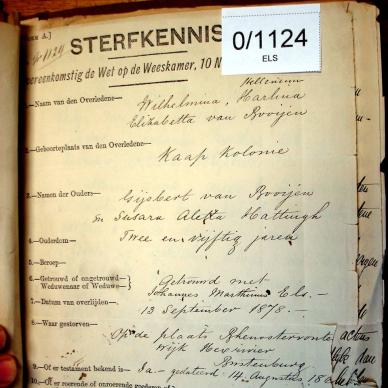 EN A.]
No 1124
STERFKENNIS
0/1124
ELS
ereenkomstig de Wet op de Weeskamer, 10 N
1.—Naam van den Overledene—
Wilhelmina, Harlina
Elizabetta van Rooijen
2.—Geboorteplaats van den Overledene—
Kaap Kolonie
3.—Namen der Ouders—
Gijsbert van Rooijen
en Susara Aletta Hattingh
4.—Ouderdom—
Twee en vijftig jaren
5.—Beroep—
6.—Getrouwd of ongetrouwd—
Weduwenaar of Weduwe—
Getrouwd met
Johannes Marthinus Els.—
7.—Datum van overlijden—
13 September 1878.—
8.—Waar gestorven—
Op de plaats Rhenosterfontein
Wijk Hexrivier
Rustenburg
9.—Of er testament bekend is—
Ja - gedateerd 14 Augustus 18